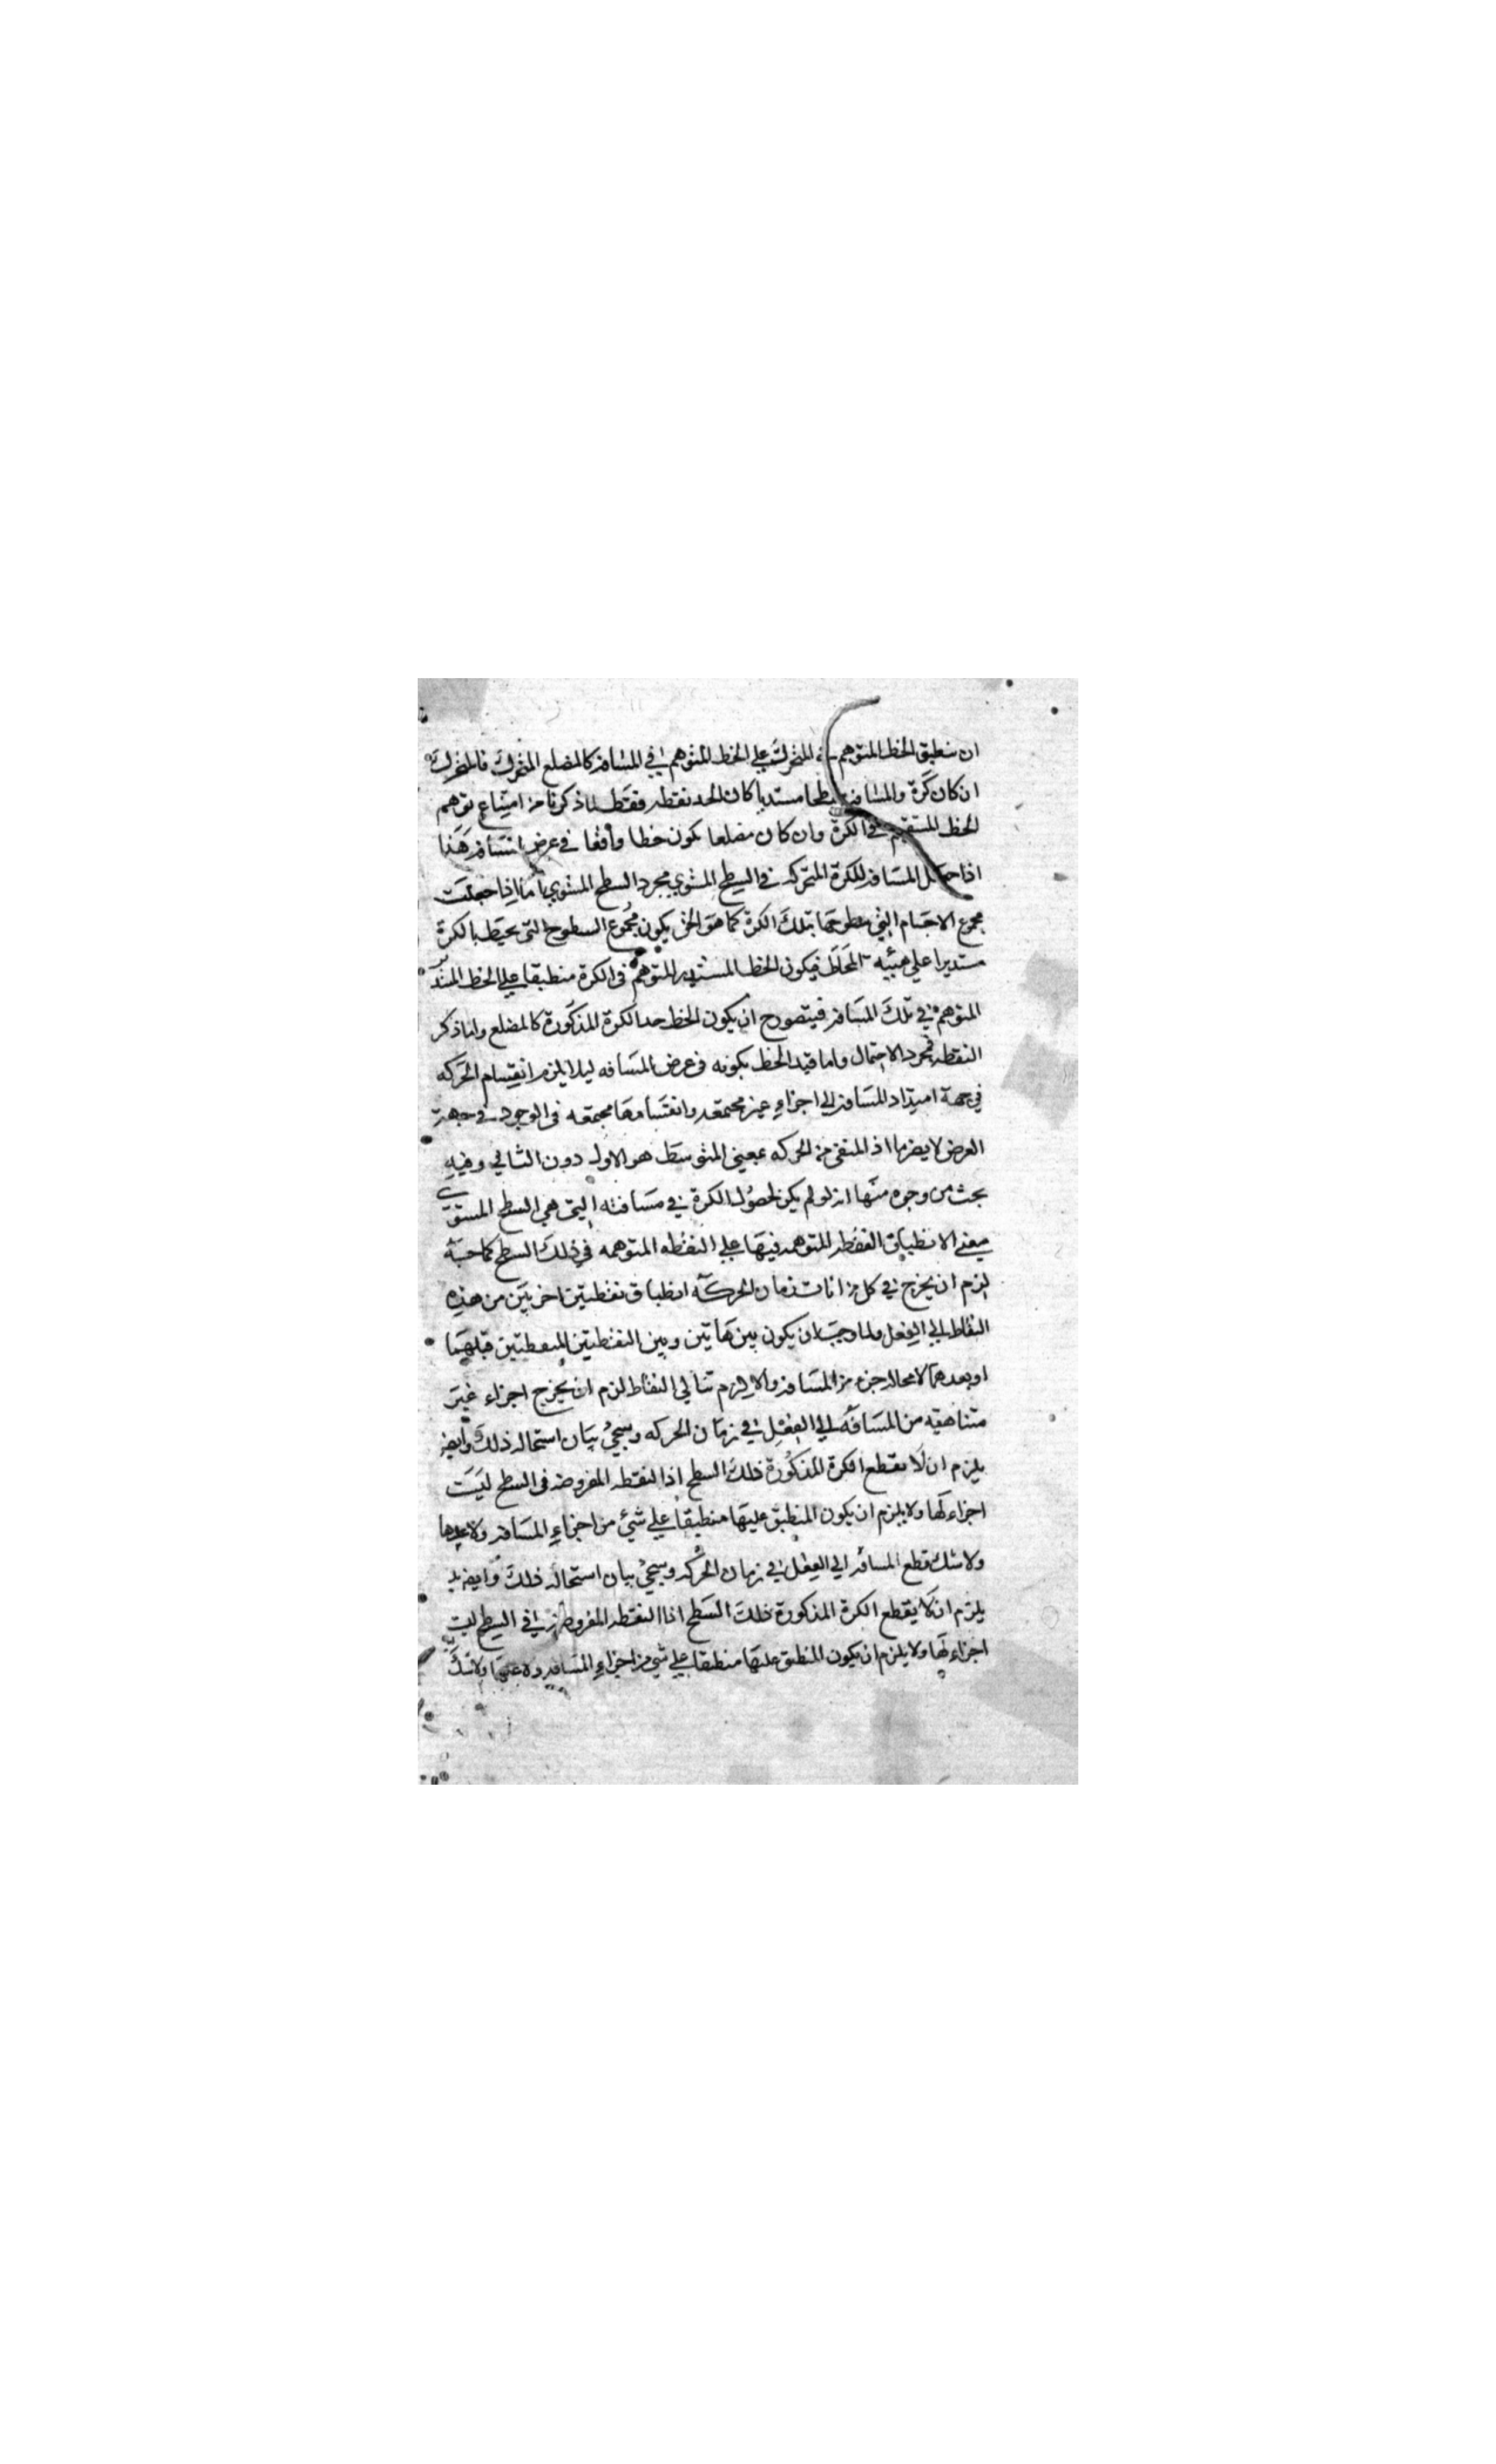 ان ينطبق الخط المتوهم في المتحرك علي الخط المتوهم في المسافة كالمضلع المتحرك فالمتحرك
ان كان كرة والمسافة سطحا مستديا كان الحد نقطه فقط لما ذكرنا من امتناع توهم
الخط المستقيم في الكرة وان كان مضلعا يكون خطا واقعا في عرض المسافة هذا
اذا جعل المسافة للكرة المتحركه في السطح المستوي مجرد السطح المستوي اما اذا جعلت
مجموع الاجسام التي سطوحها بتلك الكرة كما هو الحق يكون مجموع السطوح التي يحيط بالكرة
مستديرا علي هيئيه فيكون الخط المستدير المتوهم في الكرة منطبقا علي الخط المستد
المتوهم في تلك المسافة فيتصور ح ان يكون الخط حد الكرة المذكورة كالمضلع وانما ذكر
النقطه لمجرد الاحتمال واما قيد الخط بكونه في عرض المسافه ليلا يلزم انقسام الحركه
في جهة امتداد المسافة الي اجزاء غير مجتمعه وانقسامها مجتمعه في الوجود في جهة
العرض لا يضرها اذ المنفي من الحركه بمعني المتوسط هو الاول دون الثاني وفيه
بحث من وجوه منها انه لو لم يكن لحصول الكرة في مسافته التي هي السطح المستوي
معني الا انطباق النقطه المتوهمه فيها علي النقطه المتوهمه في ذلك السطح كما حسبه
لزم ان يخرج في كل من انات زمان الحركة انطباق نقطتين اخريين من هذه
النقاط الي الفعل ولما وجب ان يكون بين هاتين وبين النقطتين المنطبقتين قبلهما
او بعدهما لا محالة جزء من المسافة والا لزم تتالي النقاط لزم ان يخرج اجزاء غير
متناهيه من المسافة الي الفعل في زمان الحركه وسيجئ بيان استحاله ذلك وايضا
يلزم ان لا يقطع الكرة المذكورة ذلك السطح اذ النقطه المفروضه في السطح ليست
اجزاء لها ولا يلزم ان يكون المنطبق عليها منطبقا علي شئ من اجزاء المسافة ولا عليها
ولا شك قطع المسافة الي الفعل في زمان الحركه وسيجئ بيان استحالة ذلك وايضا يل
يلزم ان لا يقطع الكرة المذكورة ذلك السطح اذا النقطه المفروضة في السطح ليست
اجزاء لها ولا يلزم ان يكون المنطبق عليها منطبقا علي شئ من اجزاء المسافة ولا عليها ولا شك